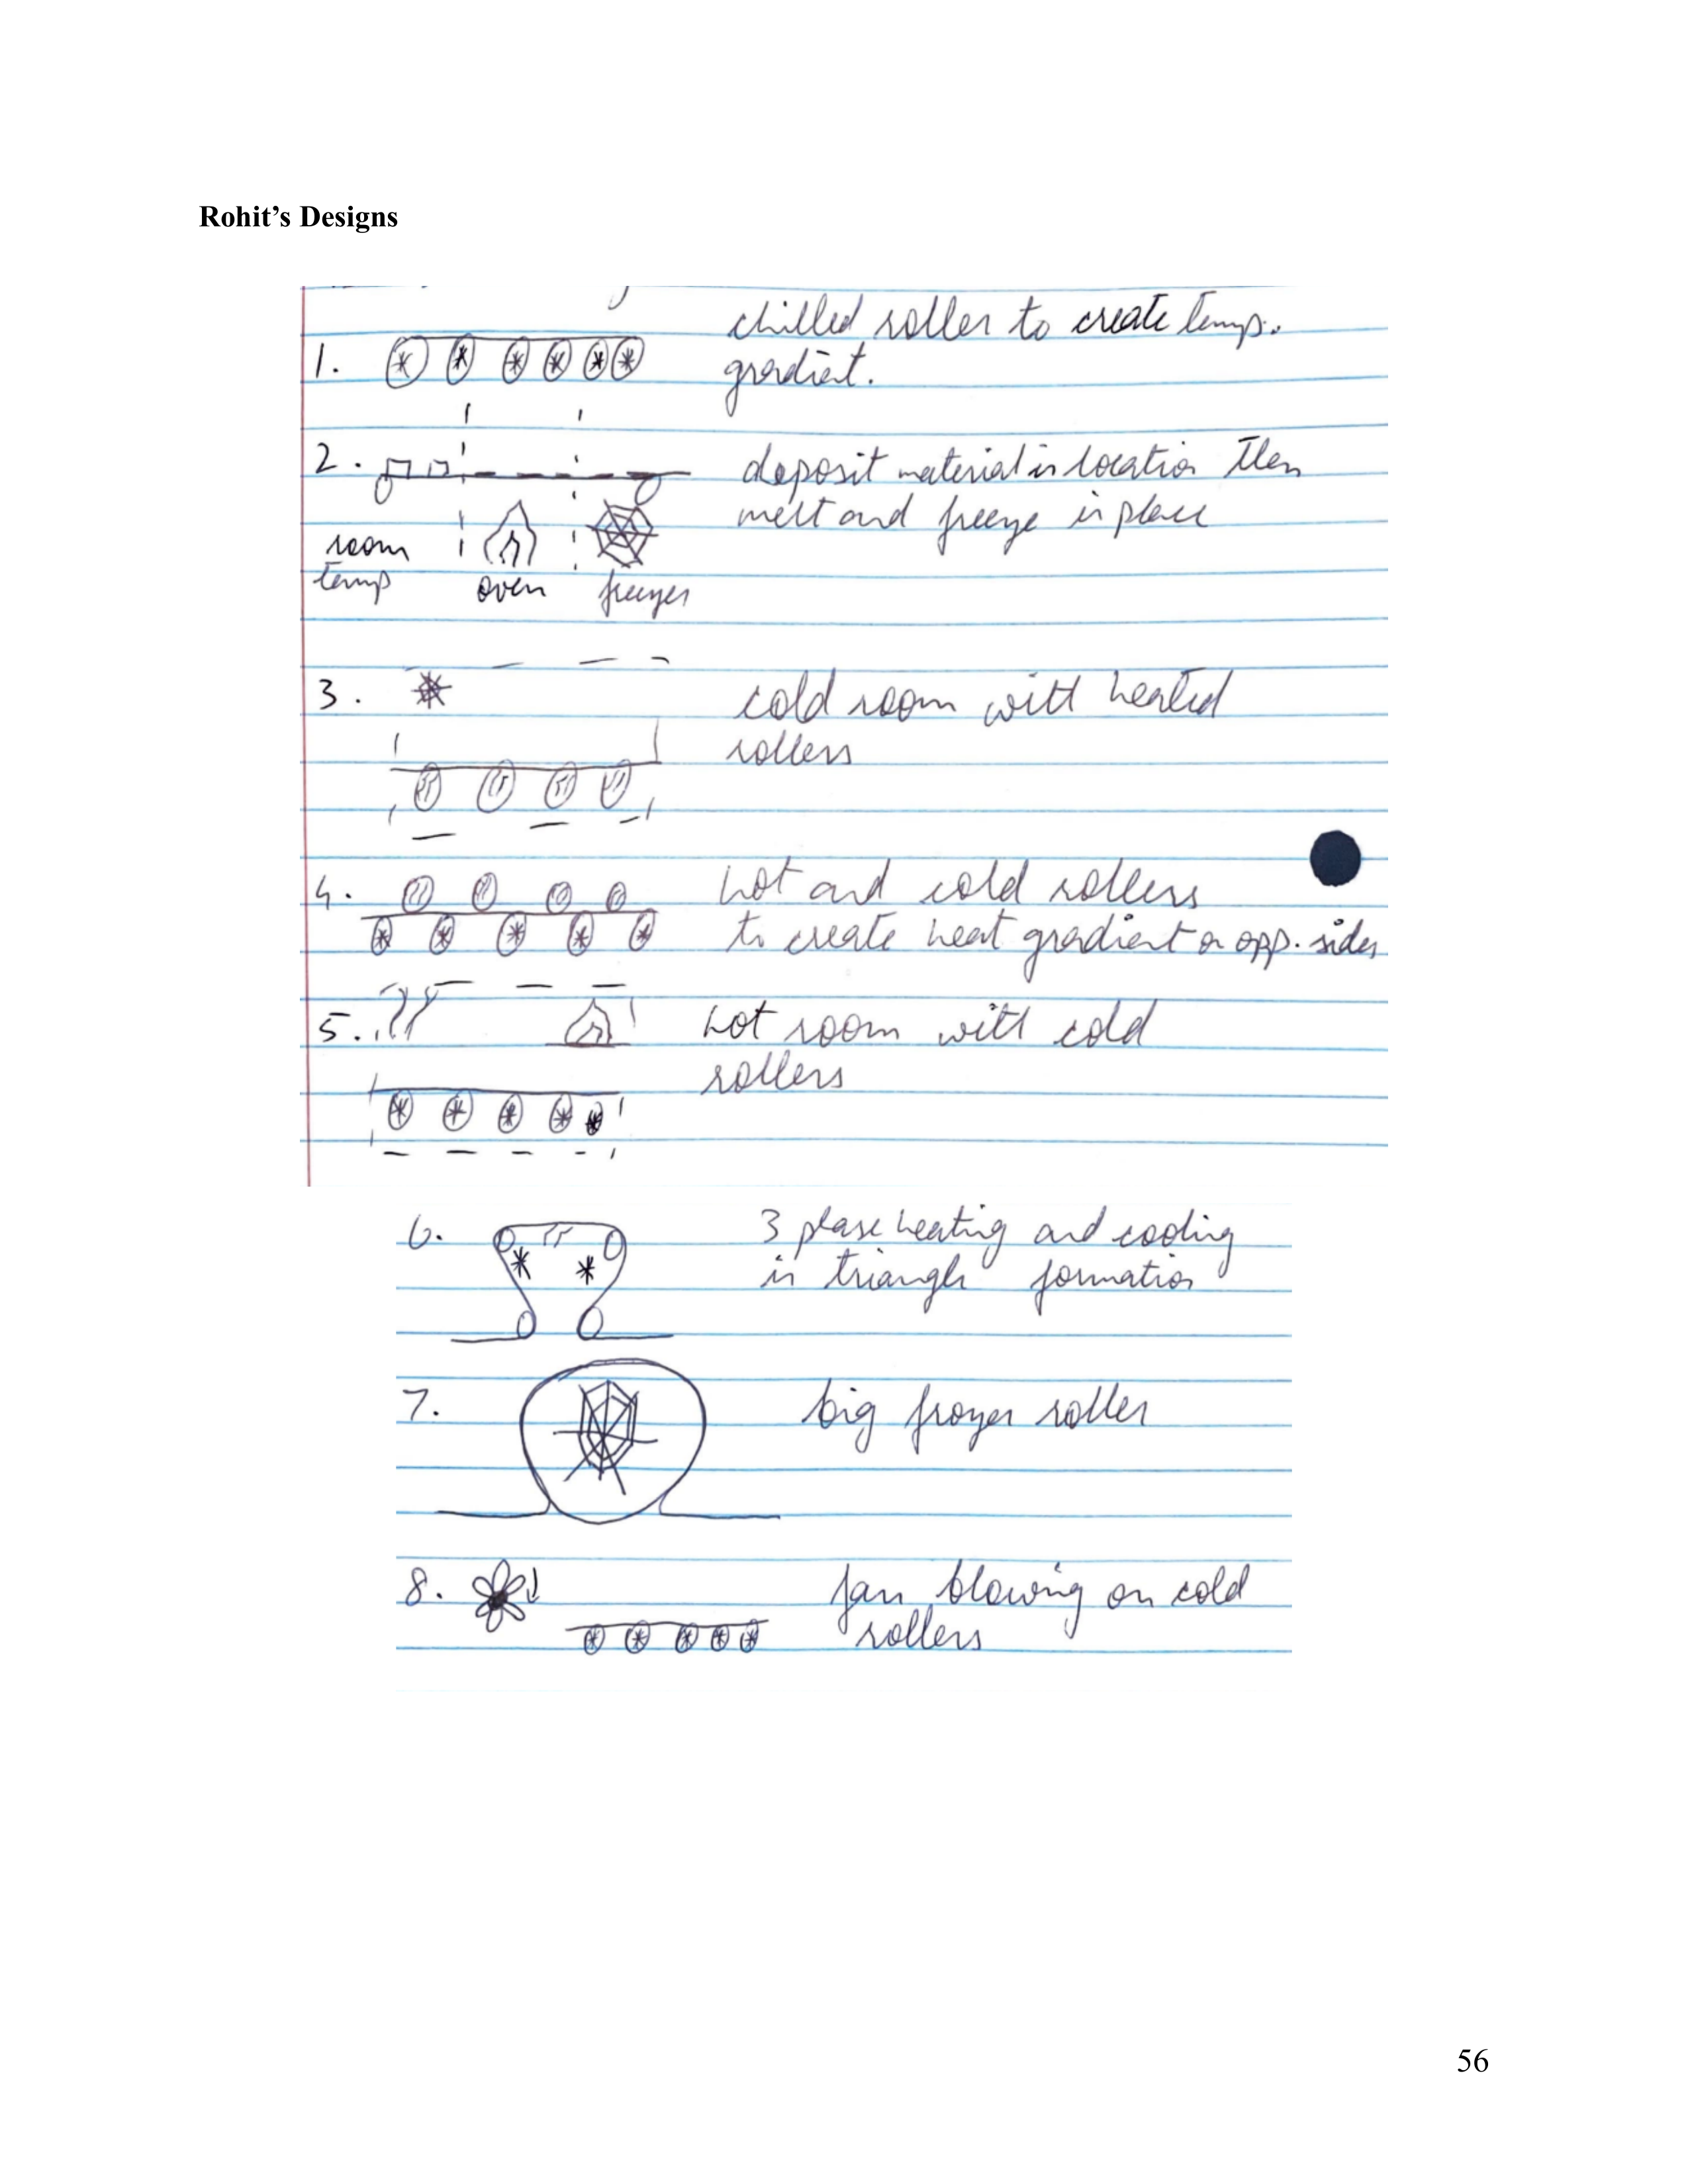 Rohit's Designs
chilled roller to create temp.
1. gradient.
2. deposit material in location then
melt and freeze in place
room
temp oven freezer
3. cold room with heated
rollers
4. hot and cold rollers
to create heat gradient on opp. sides
5. hot room with cold
rollers
6. 3 phase heating and cooling
in triangle formation
7. big frozen roller
8. fan blowing on cold
rollers
56